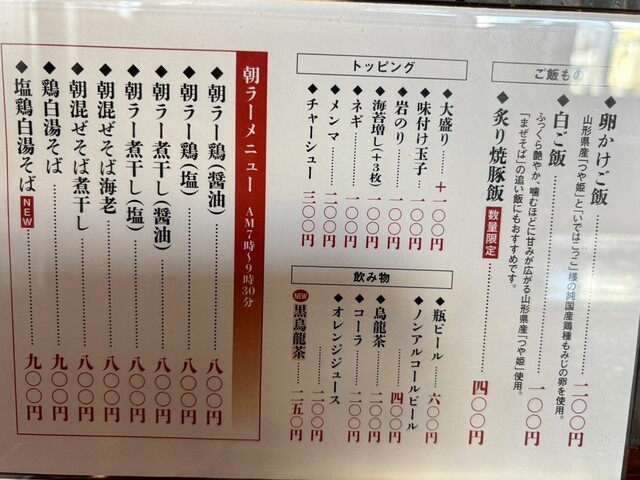 ご飯もの
◆卵かけご飯……二〇〇円
山形県産「つや姫」と「いではこっこ」様の純国産鶏種もみじの卵を使用。
◆白ご飯……一〇〇円
ふっくら艶やか、噛むほどに甘みが広がる山形県産「つや姫」使用。
「まぜそば」の追い飯にもおすすめです。
◆炙り焼豚飯 数量限定……四〇〇円
トッピング
◆大盛り……＋一〇〇円
◆味付け玉子……一〇〇円
◆岩のり……一〇〇円
◆海苔増し（＋3枚）……一〇〇円
◆ネギ……一〇〇円
◆メンマ……一〇〇円
◆チャーシュー……三〇〇円
飲み物
◆瓶ビール……六〇〇円
◆ノンアルコールビール……四〇〇円
◆烏龍茶……二〇〇円
◆コーラ……二〇〇円
◆オレンジジュース……二〇〇円
NEW 黒烏龍茶……二五〇円
朝ラーメニュー AM7時〜9時30分
◆朝ラー鶏（醤油）……八〇〇円
◆朝ラー鶏（塩）……八〇〇円
◆朝ラー煮干し（醤油）……八〇〇円
◆朝ラー煮干し（塩）……八〇〇円
◆朝混ぜそば海老……八〇〇円
◆朝混ぜそば煮干し……八〇〇円
◆鶏白湯そば……九〇〇円
◆塩鶏白湯そば NEW……九〇〇円